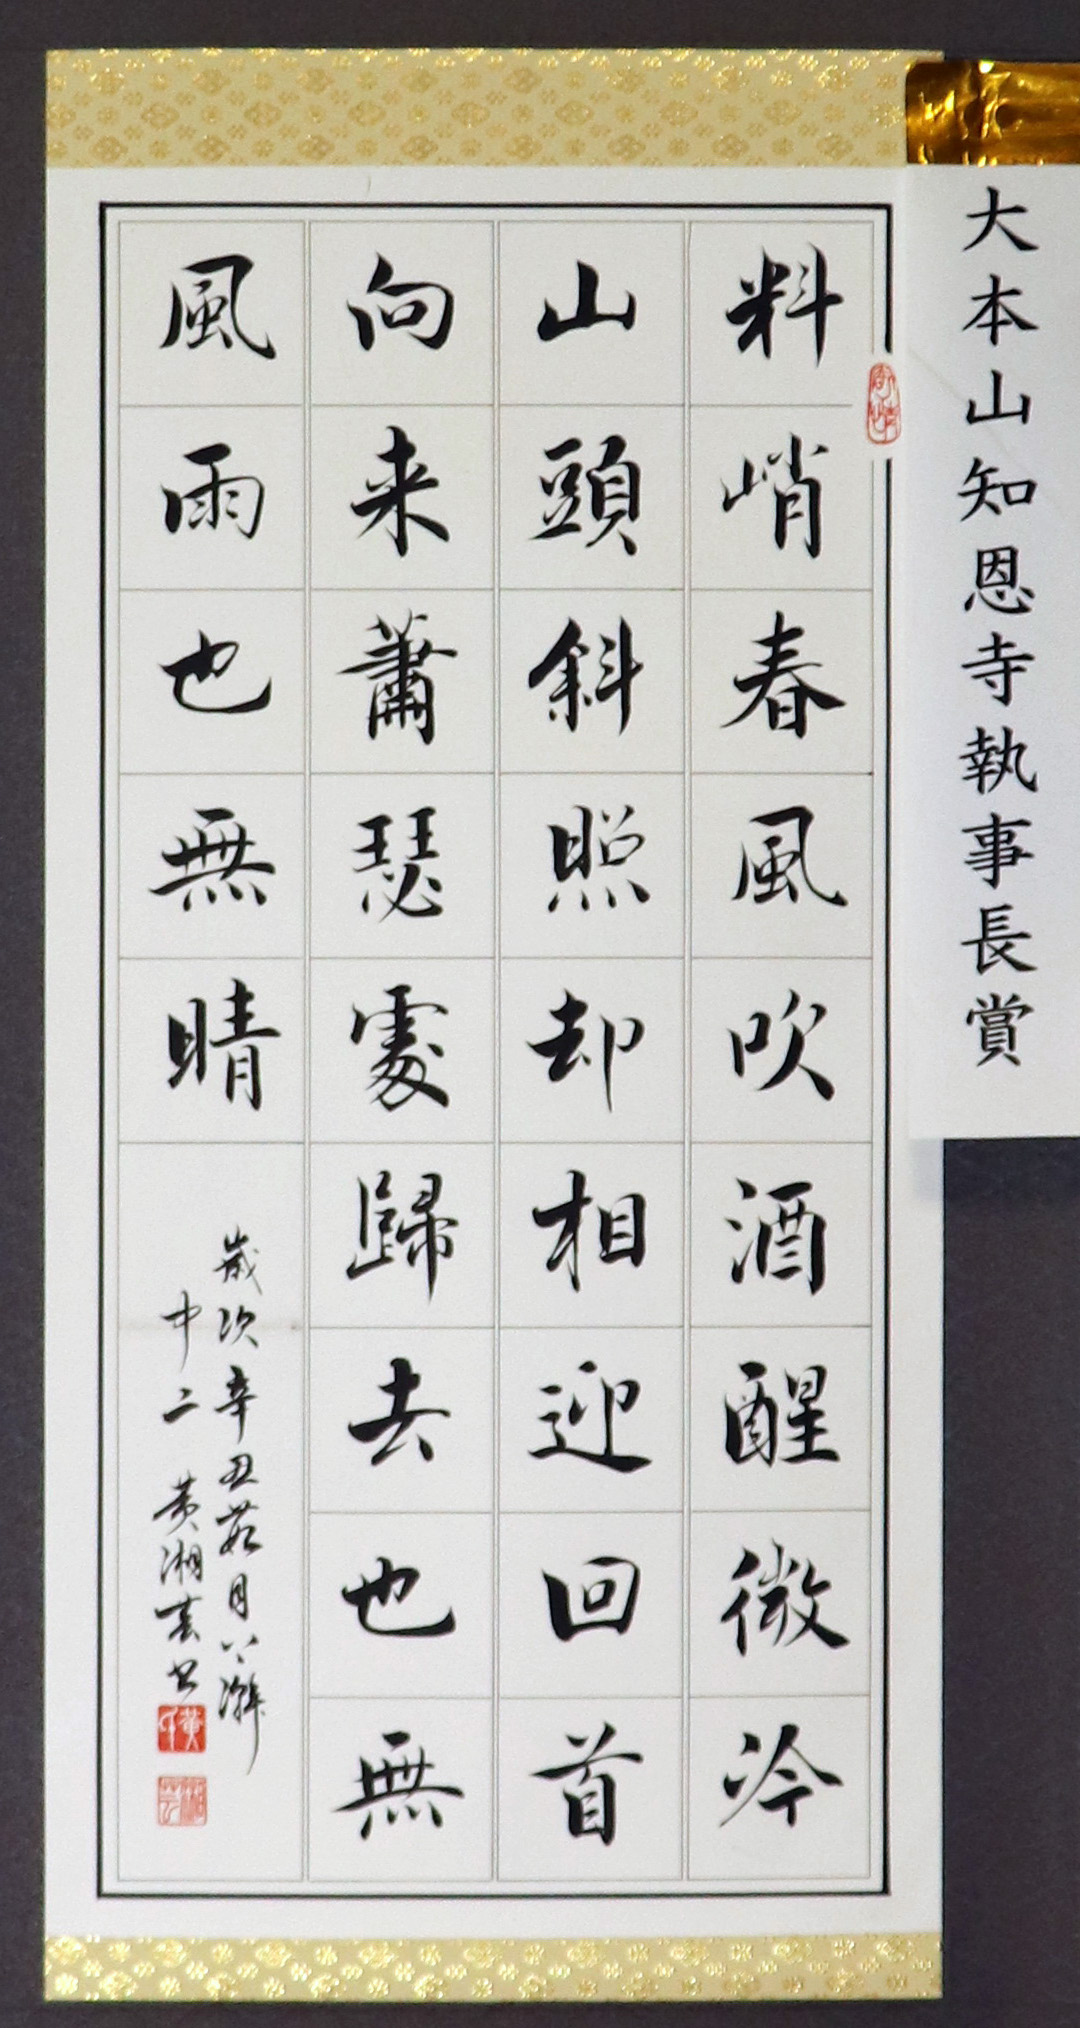 大本山知恩寺執事長賞
料峭春風吹酒醒微冷
山頭斜照却相迎回首
向来蕭瑟處歸去也無
風雨也無晴
歲次辛丑荔月以辦
中二 黄湘芸书